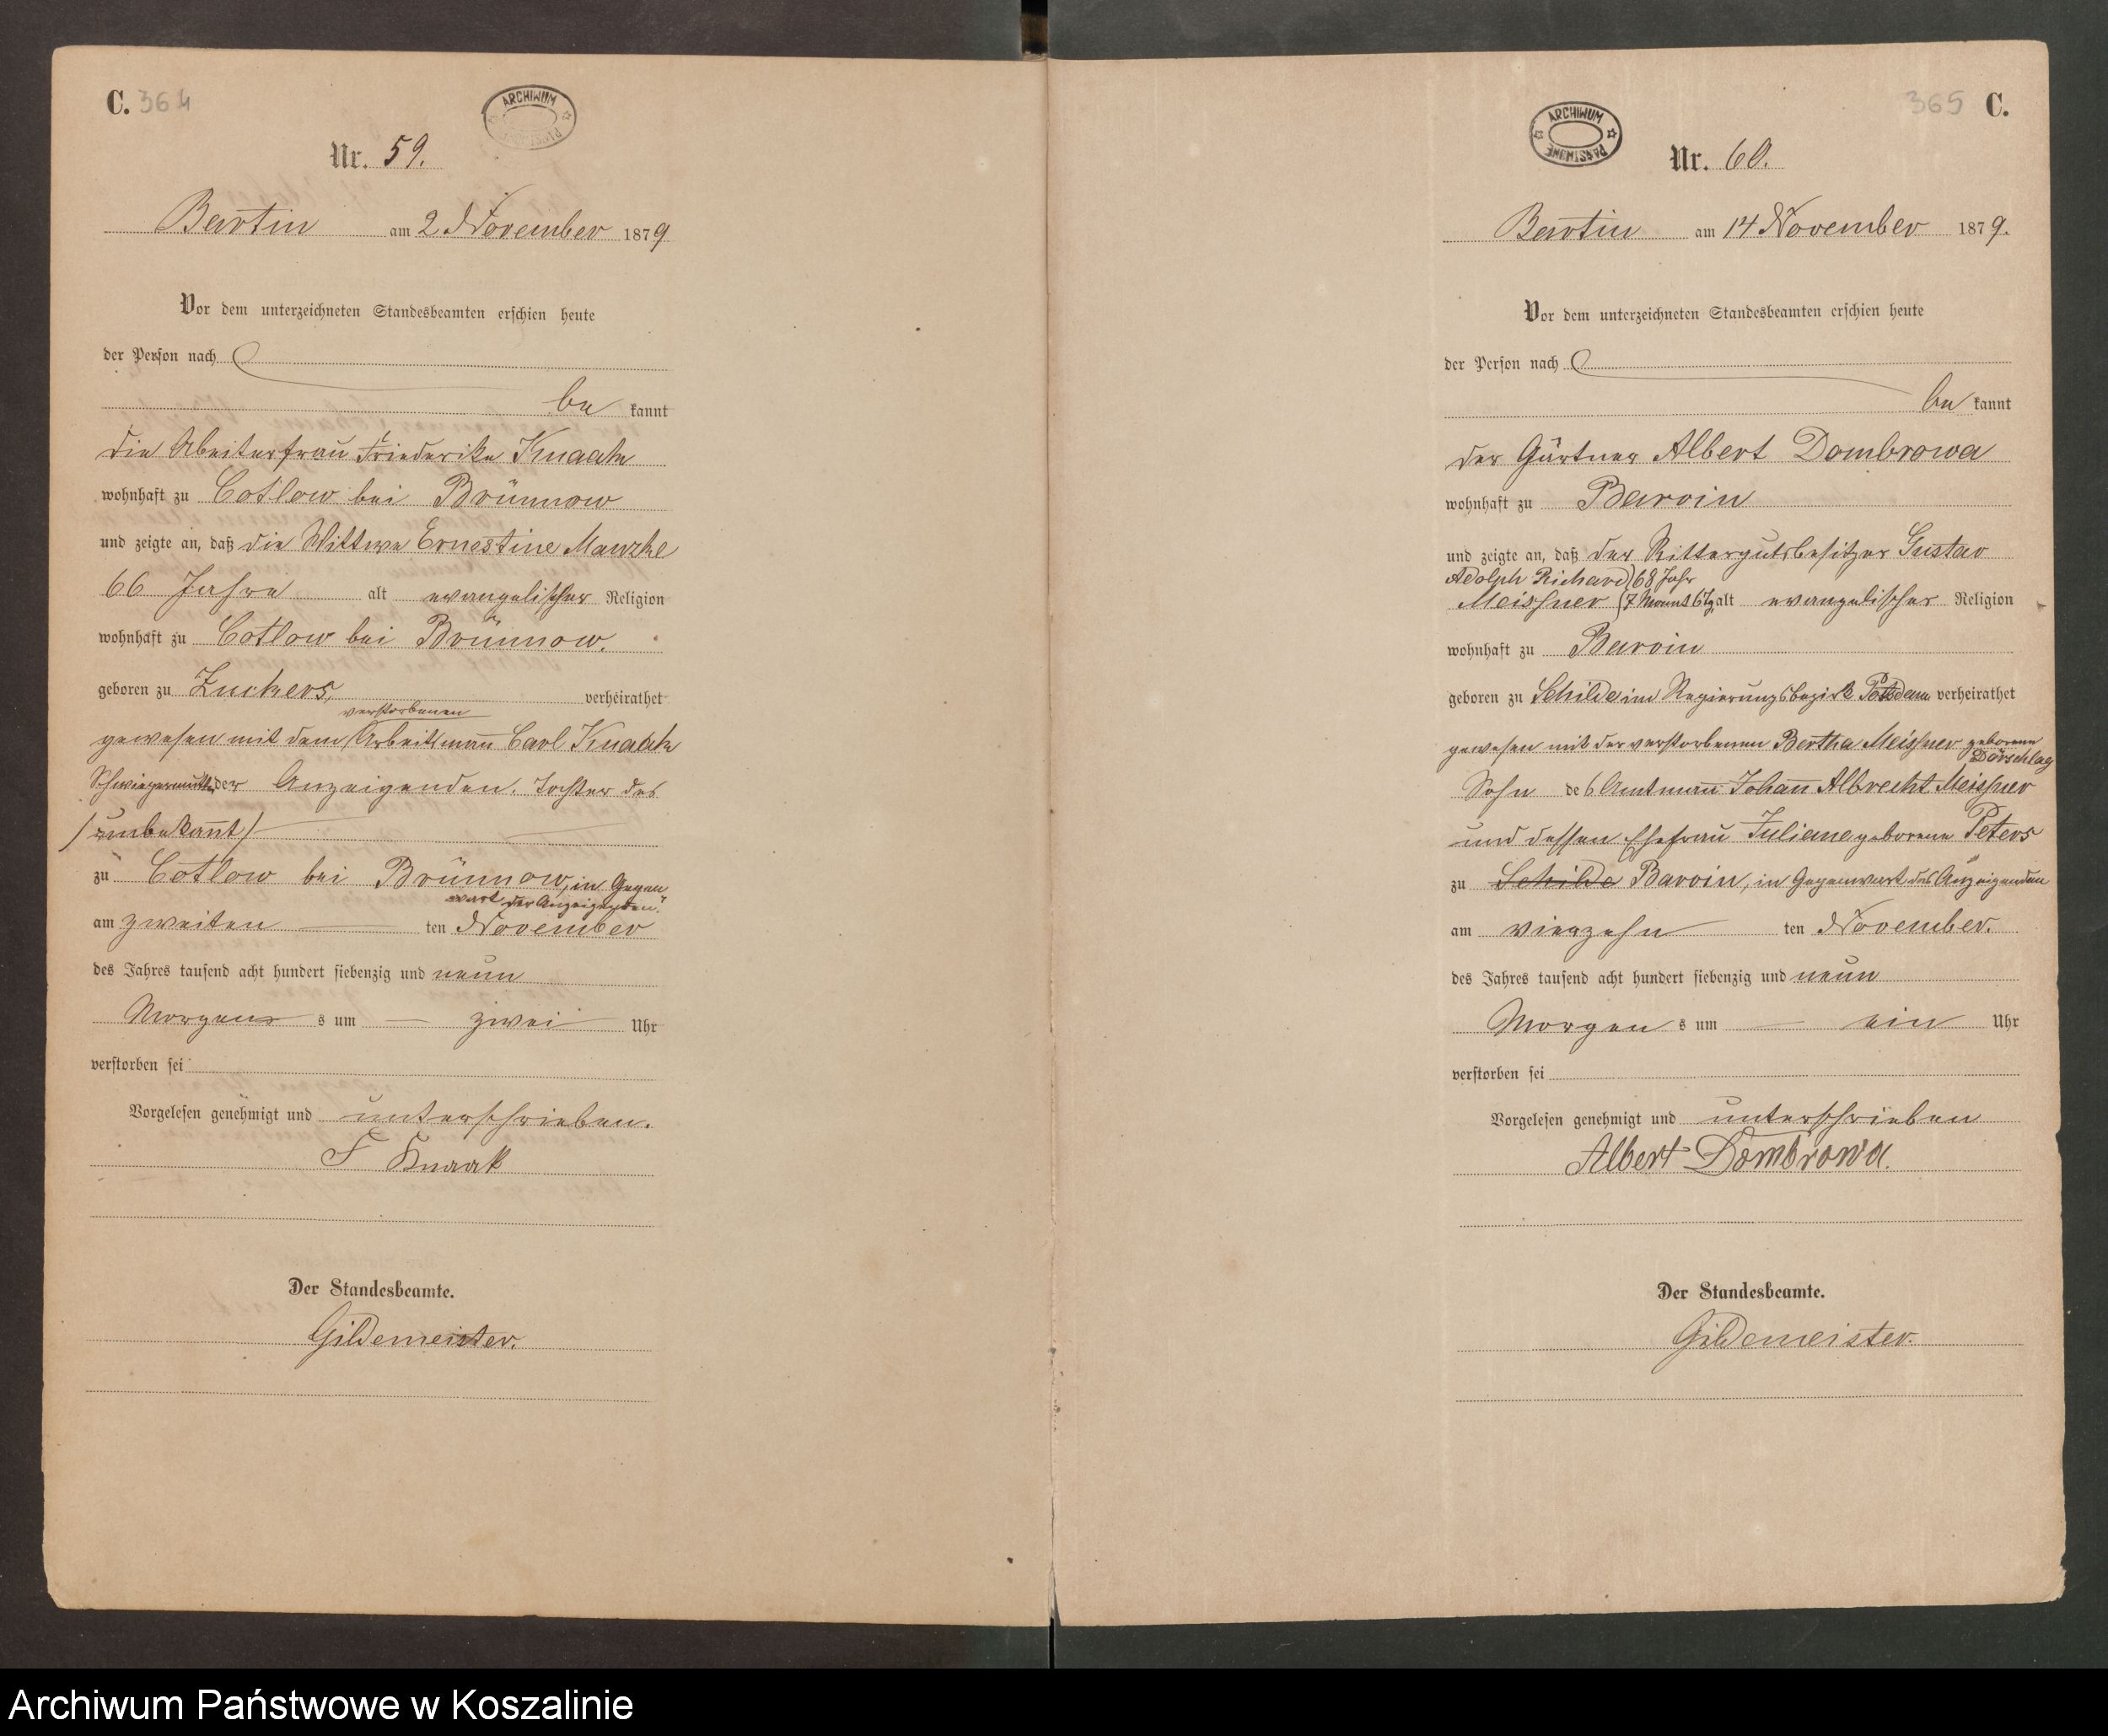 C. 364
ARCHIWUM
Nr. 59.
Bartin am 2 November 1879
Vor dem unterzeichneten Standesbeamten erschien heute
der Person nach
be kannt
die Abeiterfrau Friederike Knaack
wohnhaft zu Cotlow bei Brünnow
und zeigte an, daß die Wittwe Ernestine Manzke
66 Jahre alt evangelischer Religion
wohnhaft zu Cotlow bei Brünnow.
geboren zu Zuckers, verheirathet
verstorbenen
gewesen mit dem Arbeitsmann Carl Knaack
Schwiegermutter der Anzeigenden. Tochter des
/unbekannt/
zu Cotlow bei Brünnow, in Gegen
wart der Anzeigenden.
am zweiten ten November
des Jahres tausend acht hundert siebenzig und neun
Morgens s um zwei Uhr
verstorben sei
Vorgelesen genehmigt und unterschrieben.
F Knaak
Der Standesbeamte.
Gildemeister.
365 C.
ARCHIWUM PAŃSTWOWE
Nr. 60.
Bartin am 14 November 1879.
Vor dem unterzeichneten Standesbeamten erschien heute
der Person nach
be kannt
der Gärtner Albert Dombrowa
wohnhaft zu Barvin
und zeigte an, daß der Rittergutsbesitzer Gustav
Adolph Richard 68 Jahr
Meissner 7 Monat 6 Tg alt evangelischer Religion
wohnhaft zu Barvin
geboren zu Schilde im Regierungsbezirk Potsdam verheirathet
gewesen mit der verstorbenen Bertha Meissner geborene
Dörschlag
Sohn des Amtmann Johann Albrecht Meissner
und dessen Ehefrau Juliane geborene Peters
zu Schilde Barvin, in Gegenwart des Anzeigenden
am vierzehn ten November.
des Jahres tausend acht hundert siebenzig und neun
Morgen s um ein Uhr
verstorben sei
Vorgelesen genehmigt und unterschrieben
Albert Dombrowa.
Der Standesbeamte.
Gildemeister.
Archiwum Państwowe w Koszalinie